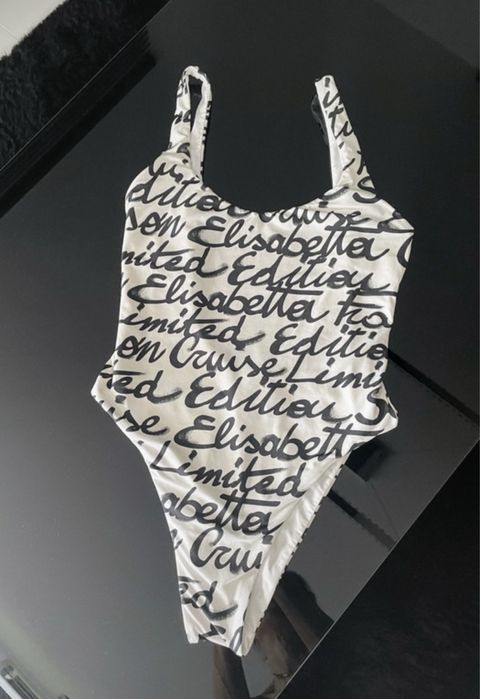 Edition Cruise S
son Elisabetta C
mited Edition
Elisabetta Fro
imited Editio
on Cruise Limi
ted Edition S
ise Elisabett
Limited
abetta
Crui
ed